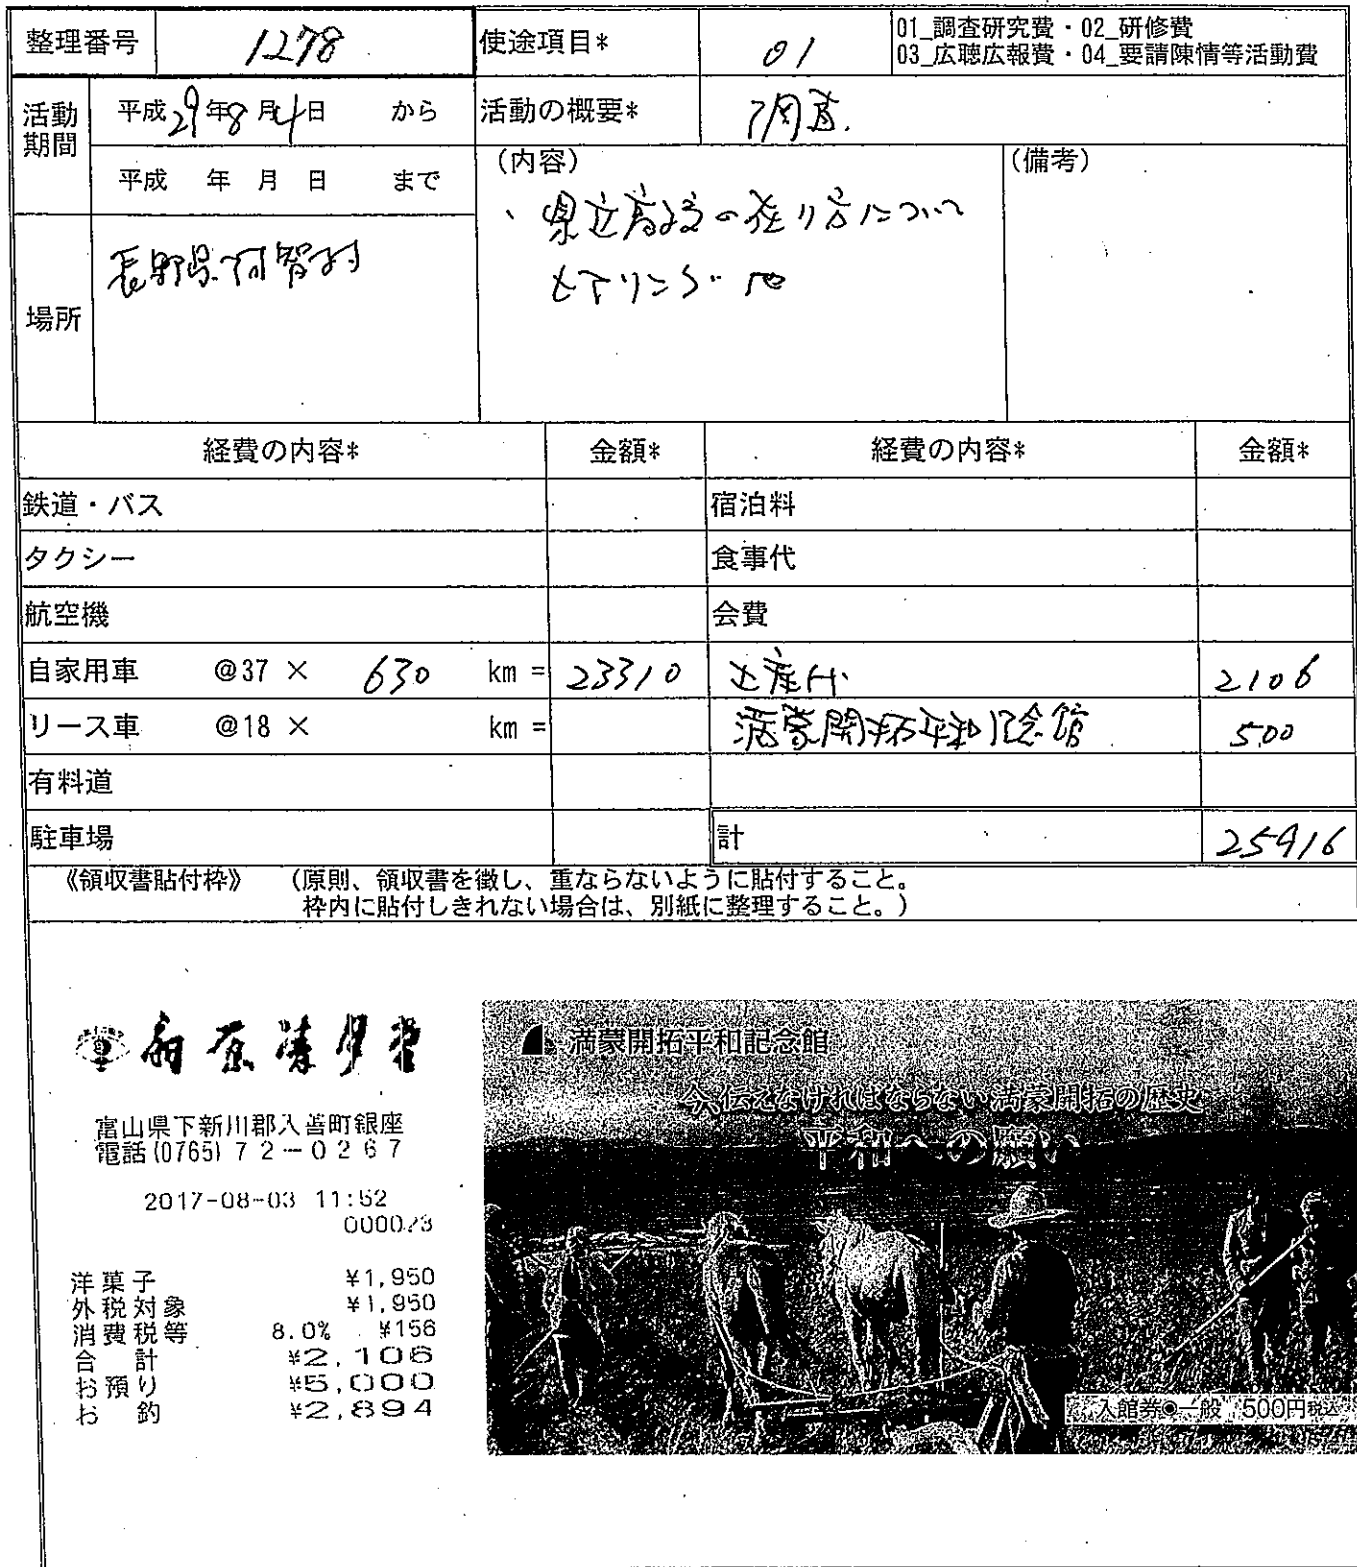 整理番号 1278 使途項目* 01 01_調査研究費・02_研修費
03_広聴広報費・04_要請陳情等活動費
活動期間 平成29年8月4日 から 活動の概要* 調査.
平成 年 月 日 まで (内容) (備考)
、県立高校の在り方について
ヒアリング 他
場所 長野県阿智村
経費の内容* 金額* 経費の内容* 金額*
鉄道・バス 宿泊料
タクシー 食事代
航空機 会費
自家用車 @37 × 630 km = 23310 土産代 2106
リース車 @18 × km = 満蒙開拓平和記念館 500
有料道
駐車場 計 25916
《領収書貼付枠》 (原則、領収書を徴し、重ならないように貼付すること。
枠内に貼付しきれない場合は、別紙に整理すること。)
富山県下新川郡入善町銀座
電話(0765)72-0267
2017-08-03 11:52
000023
洋菓子 ¥1,950
外税対象 ¥1,950
消費税等 8.0% ¥156
合計 ¥2,106
お預り ¥5,000
お釣 ¥2,894
満蒙開拓平和記念館
今、伝えなければならない満蒙開拓の歴史
平和への願い
入館券●一般 500円税込